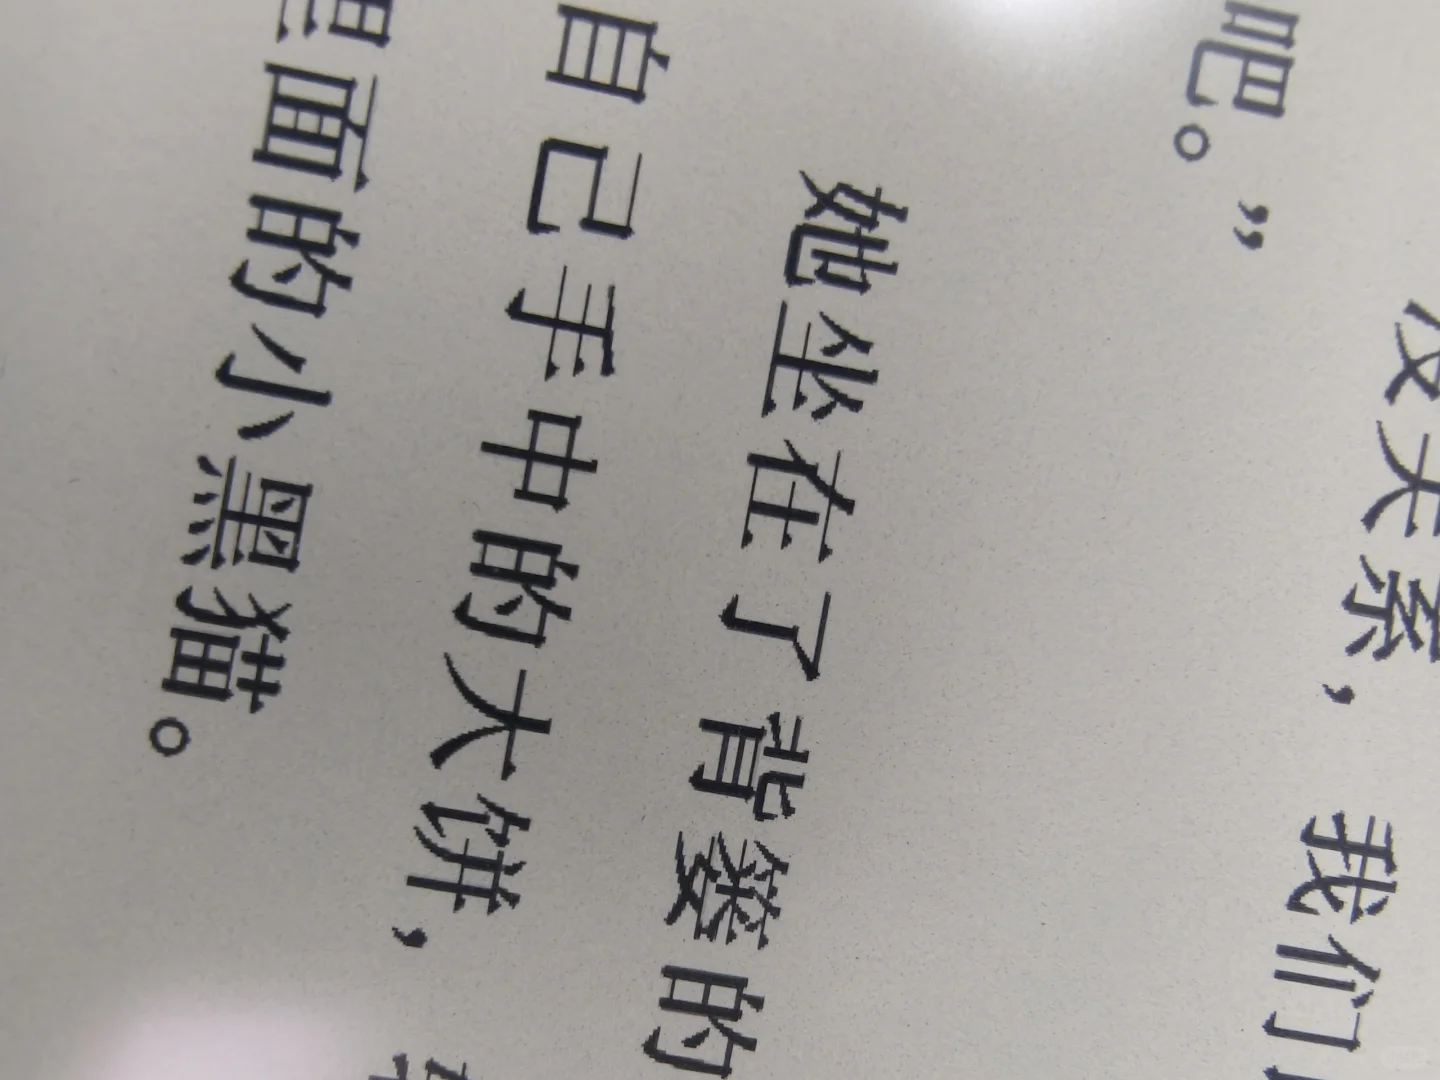 没关系，我们
吧。”
她坐在了背篓的
自己手中的大饼，
里面的小黑猫。